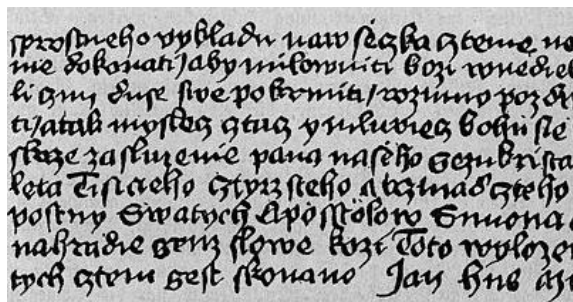 sprostneho vykladu naw seczka czteme ne
nie dokonati / aby milownici bozi w nediel
li czinu duse swe pokrmiti / rozumu pozdw
ti / a tak myslecz cztucz y mluwiecz bohu sie
skrze zasluzenie pana naseho gezukrista
leta Tisicieho cztyrzsteho a trzinadczteho
postny Swatych Aposstolow Simona a
na hradie genz slowe kozi Toto wylozen
tych cztem gest skonano Jan hus